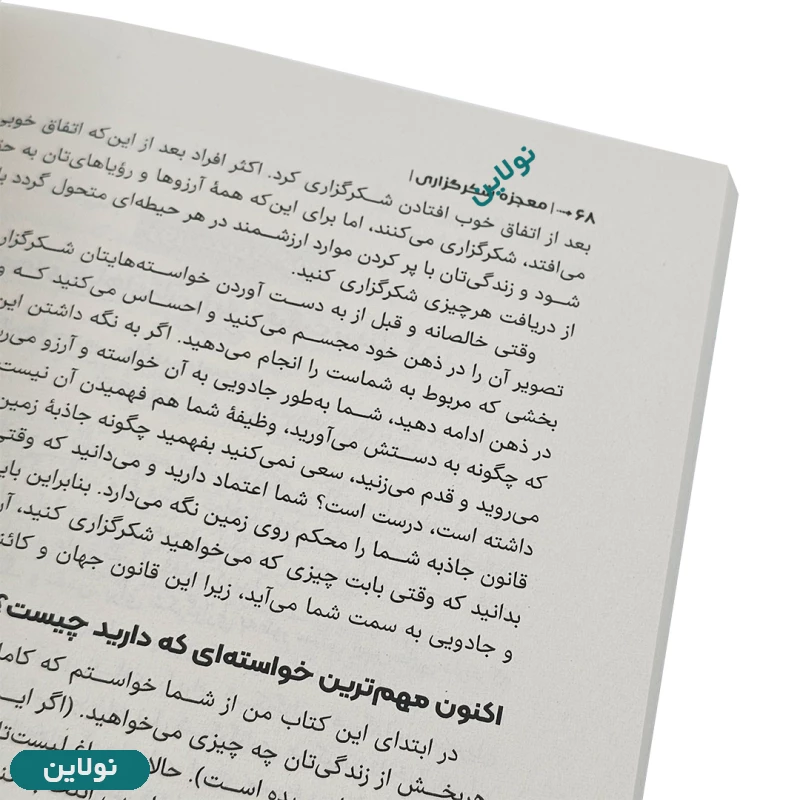 ۶۸ →| معجزه شکرگزاری |
نولاین
بعد از اتفاق خوب افتادن شکرگزاری کرد. اکثر افراد بعد از این‌که اتفاق خوبی
می‌افتد، شکرگزاری می‌کنند، اما برای این‌که همهٔ آرزوها و رؤیاهای‌تان به
شود و زندگی‌تان با پر کردن موارد ارزشمند در هر حیطه‌ای متحول گردد
از دریافت هرچیزی شکرگزاری کنید.
وقتی خالصانه و قبل از به دست آوردن خواسته‌هایتان شکرگزار
تصویر آن را در ذهن خود مجسم می‌کنید و احساس می‌کنید که
بخشی که مربوط به شماست را انجام می‌دهید. اگر به نگه داشتن این
در ذهن ادامه دهید، شما به‌طور جادویی به آن خواسته و آرزو
که چگونه به دستش می‌آورید، وظیفهٔ شما هم فهمیدن آن نیست
می‌روید و قدم می‌زنید، سعی نمی‌کنید بفهمید چگونه جاذبهٔ زمین
داشته است، درست است؟ شما اعتماد دارید و می‌دانید که وقتی
قانون جاذبه شما را محکم روی زمین نگه می‌دارد. بنابراین
بدانید که وقتی بابت چیزی که می‌خواهید شکرگزاری کنید،
و جادویی به سمت شما می‌آید، زیرا این قانون جهان و
اکنون مهم‌ترین خواسته‌ای که دارید چیست؟
در ابتدای این کتاب من از شما خواستم که
هربخش از زندگی‌تان چه چیزی می‌خواهید. (اگر
است). حالا
نولاین